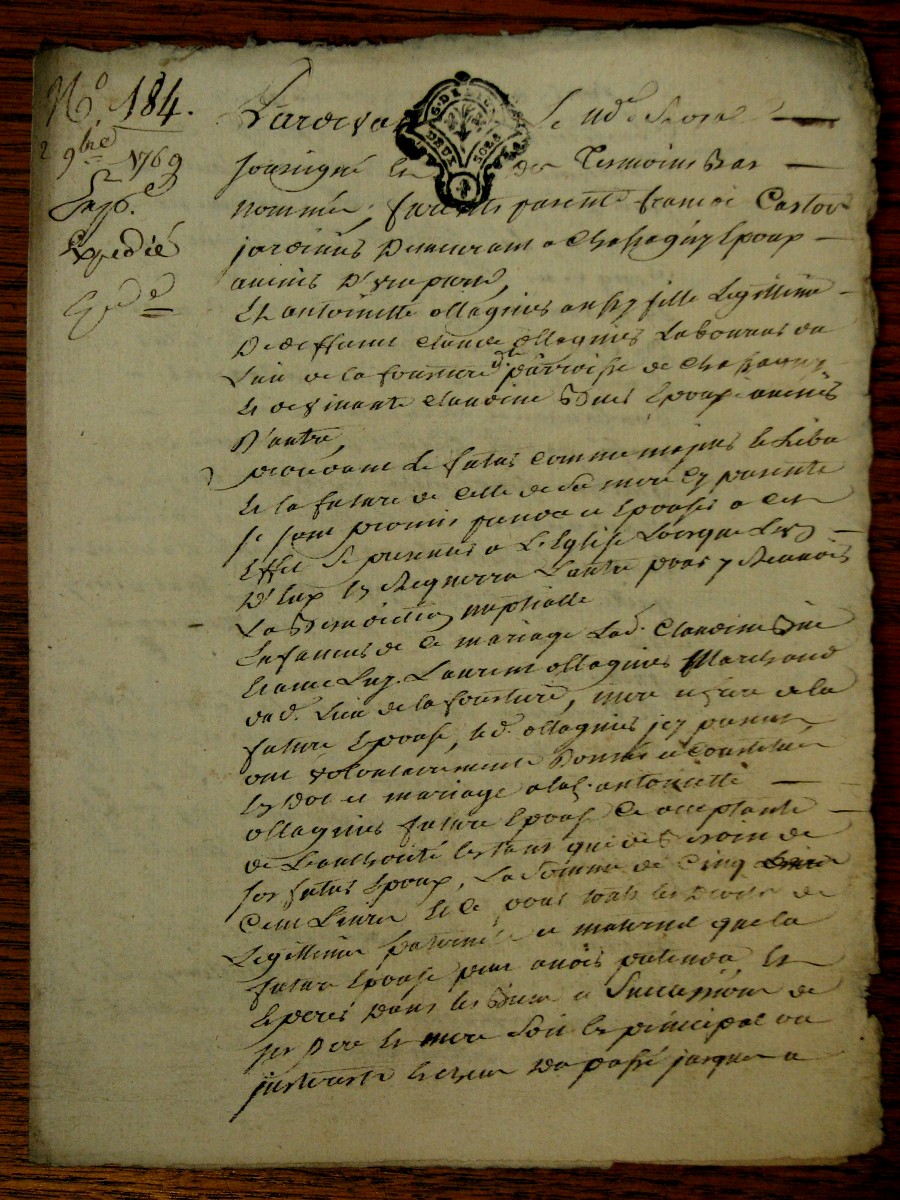 N.º 184.
2 9bre 1769
Expedié
Pardeva Le Nre Roial
soussigné et des Temoins bas
nommés, furent présents françois Castor
jardinier Demeurant a Chassagny Epoux
avenir D'une part,
Et antoinette ollagnier aussy fille Legitime
De deffunt Claude ollagnier Laboureur du
Lieu de la fourriere parroisse de Chassagny
Et de vivante Claudine Epouse avenir
D'autre,
procedant Le futur Comme majeur et Libre
Et la future de Celle de sa mere Cy presente
se sont promis prendre et Epouser a Cet
Effet se presenter a L'Eglise Lorsque L'un
D'Eux En Requerra L'autre pour y Recevoir
La Benediction nuptialle
En faveur de Ce mariage Lad. Claudine
Et avec Luy Laurent ollagnier Marchand
dud. Lieu de la fourriere, mere et frere de la
future Epouse, led. ollagnier icy present
ont volontairement Donné et Constitué
En Dot et mariage a lad. antoinette
ollagnier future Epouse Ce acceptante
de L'authorité En tant que de besoin de
son futur Epoux, La Somme de Cinq
Cent Livres Et Ce pour touts les Droits de
Legitime paternelle et maternelle que la
future Epouse peut avoir pretendre Et
Esperer Dans les Biens et Succession de
ses Pere Et mere Soit En principal ou
interets Echeus Du passé jusques a